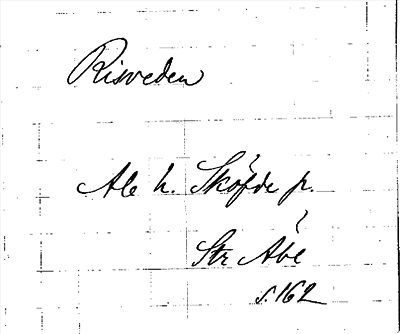 Risveden
Ale h. Sköfde p.
Str Åbe
s. 162